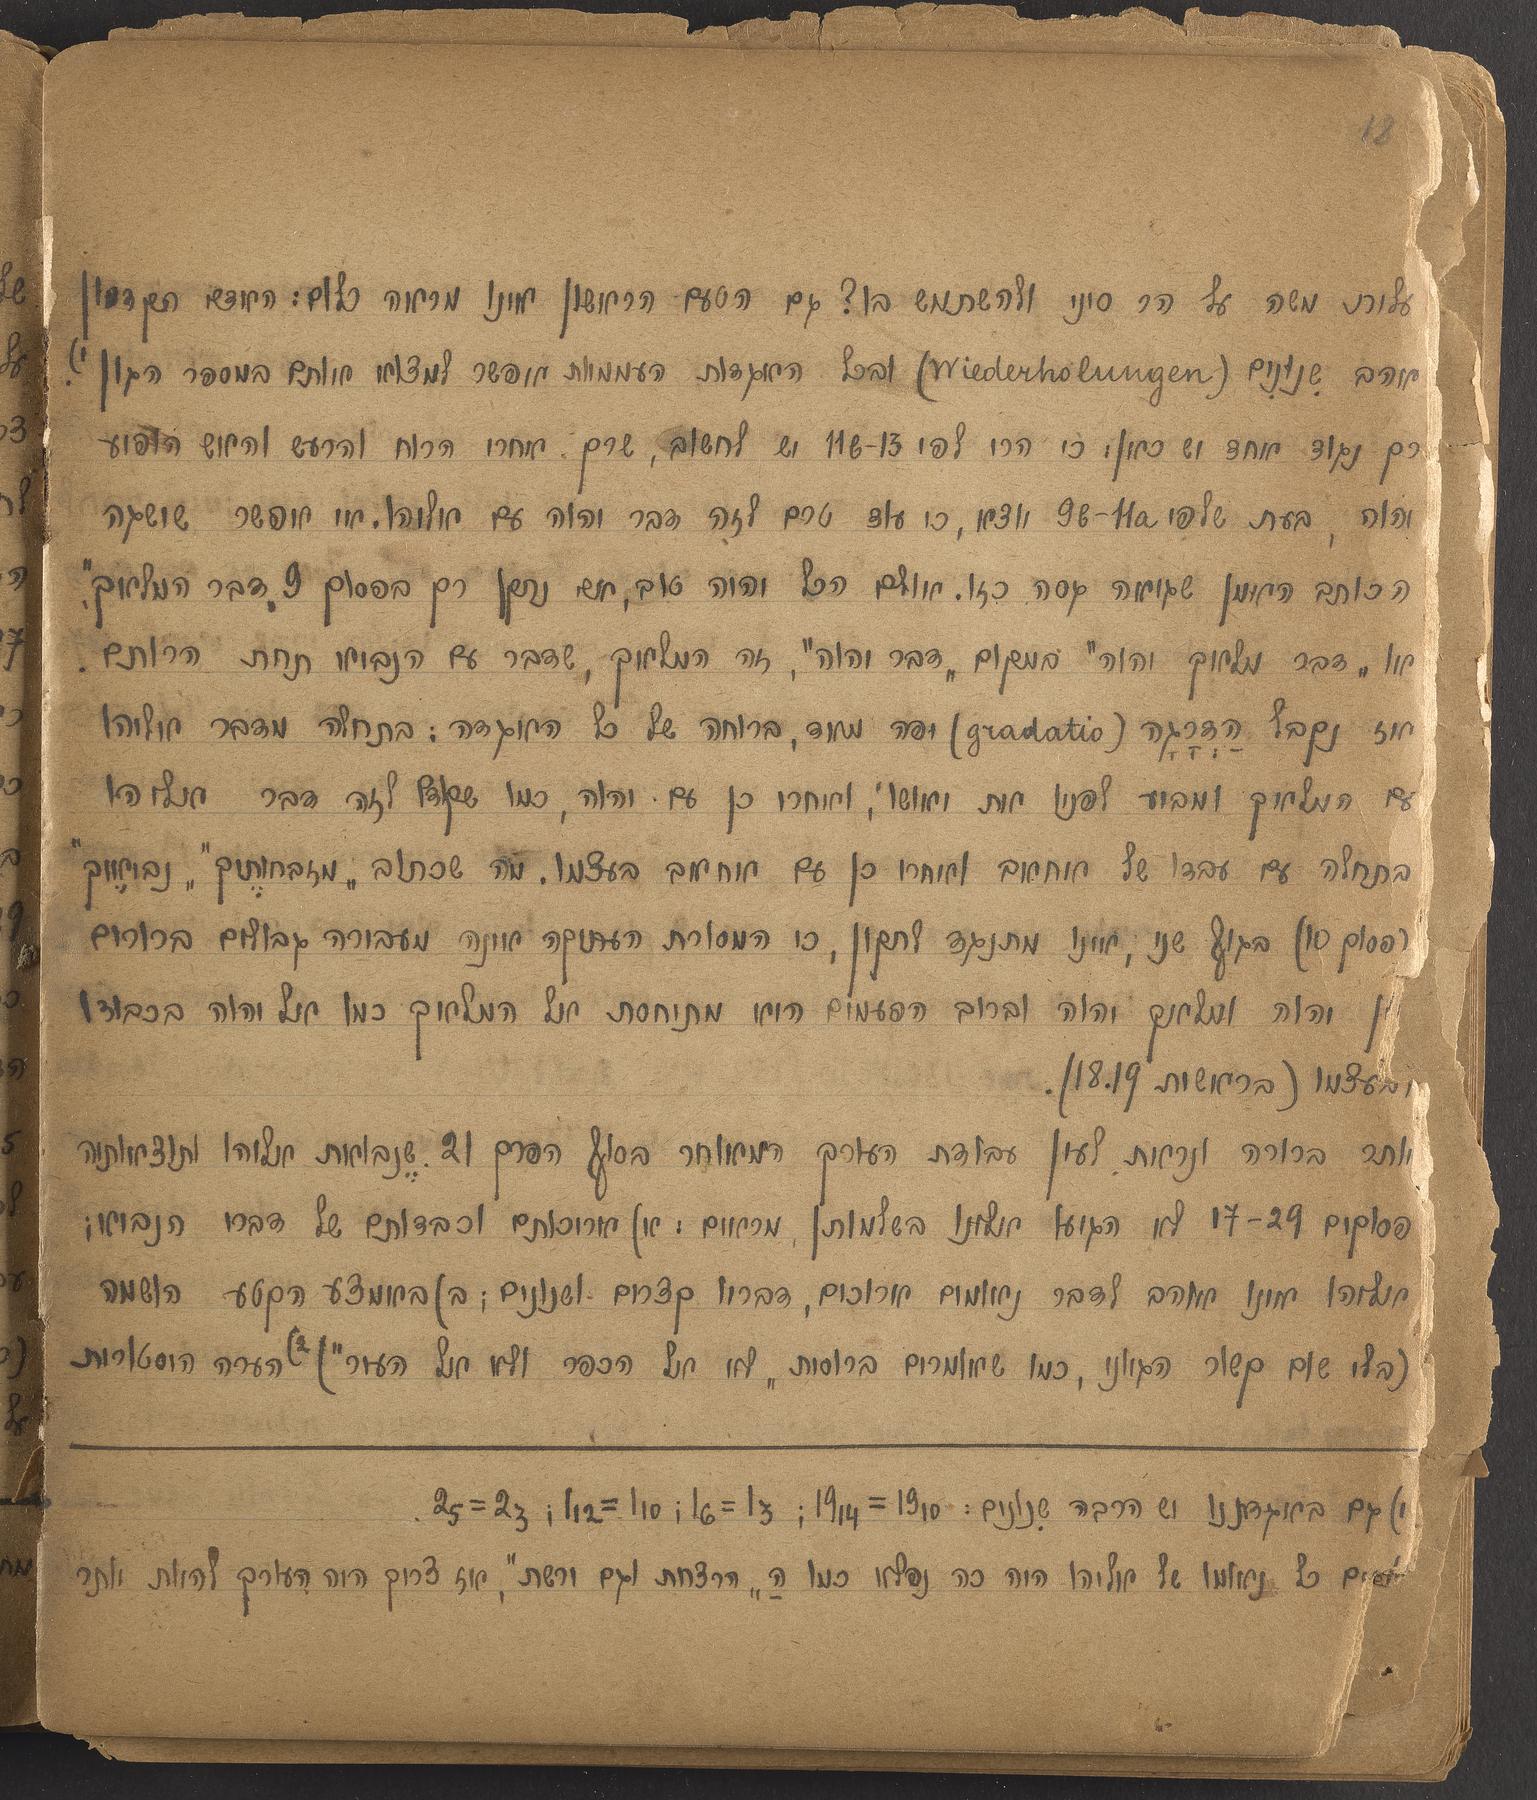 18
עלית משה על הר סיני ולהשתמש בו? גם הטעם הראשון אינו מראה כלום: האדם הקדמון
אוהב שִנוּנִים (Wiederholungen) ובכל האגדות העממיות אפשר למצוא אותם במספר הגון ¹).
רק נגוד אחד יש כאן: כי הרי לפי 11b-13 יש לחשוב, שרק אחרי הרוח והרעש והאש הופיע
יהוה, בעת שלפי 9b-11a יוצא, כי עוד טרם לזה דבר יהוה עם אליהו. אי אפשר שישגה
הכותב האמן שגיאה גסה כזו. אולם הכל יהיה טוב, אם נתקן רק בפסוק 9 „דבר המלאך".
או „דבר מלאך יהוה" במקום „דבר יהוה", זה המלאך, שדבר עם הנביא תחת הרותם.
אז נקבל הַדְרָגָה (gradatio) יפה מאוד, ברוחה של כל האגדה: בתחלה מדבר אליהו
עם המלאך ומביע לפניו את יאושו, ואחרי כן עם יהוה, כמו שקודם לזה דבר אליהו
בתחלה עם עבדו של אחאב ואחרי כן עם אחאב בעצמו. מה שכתוב „מזבחותֶיךָ" „נביאֶיךָ"
(פסוק 10) בגוף שני, אינו מתנגד לתקון, כי המסורת העתיקה אינה מעבירה גבולים ברורים
יהוה ומלאך יהוה וברוב הפעמים היא מתיחסת אל המלאך כמו אל יהוה בכבודו
ובעצמו (בראשית 18.19).
יותר ברורה ונראית לעין עבודת העורך המאוחר בסוף הפרק 21. שֶנבואת אליהו ותוצאותיה
פסוקים 17-29 לא הגיעו אלינו בשלמותן, מראים: א) אריכותם וכבדותם של דברי הנביא;
אליהו אינו אוהב לדבר נאומים ארוכים, דבריו קצרים ושנונים; ב) באמצע הקטע הושמה
(בלי שום קשור הגיוני, כמו שאומרים ברוסית „לא אל הכפר ולא אל העיר") ²) הערה היסטורית
¹) גם באגדתנו יש הרבה שִנונים: 19₁₄ = 19₁₀ ; 1₆ = 1₃ ; 1₁₂ = 1₁₀ ; 2₅ = 2₃ .
כל נאומו של אליהו היה כה נפלא כמו הַ „הרצחת וגם ירשת", אז צריך היה העורך להיות יותר